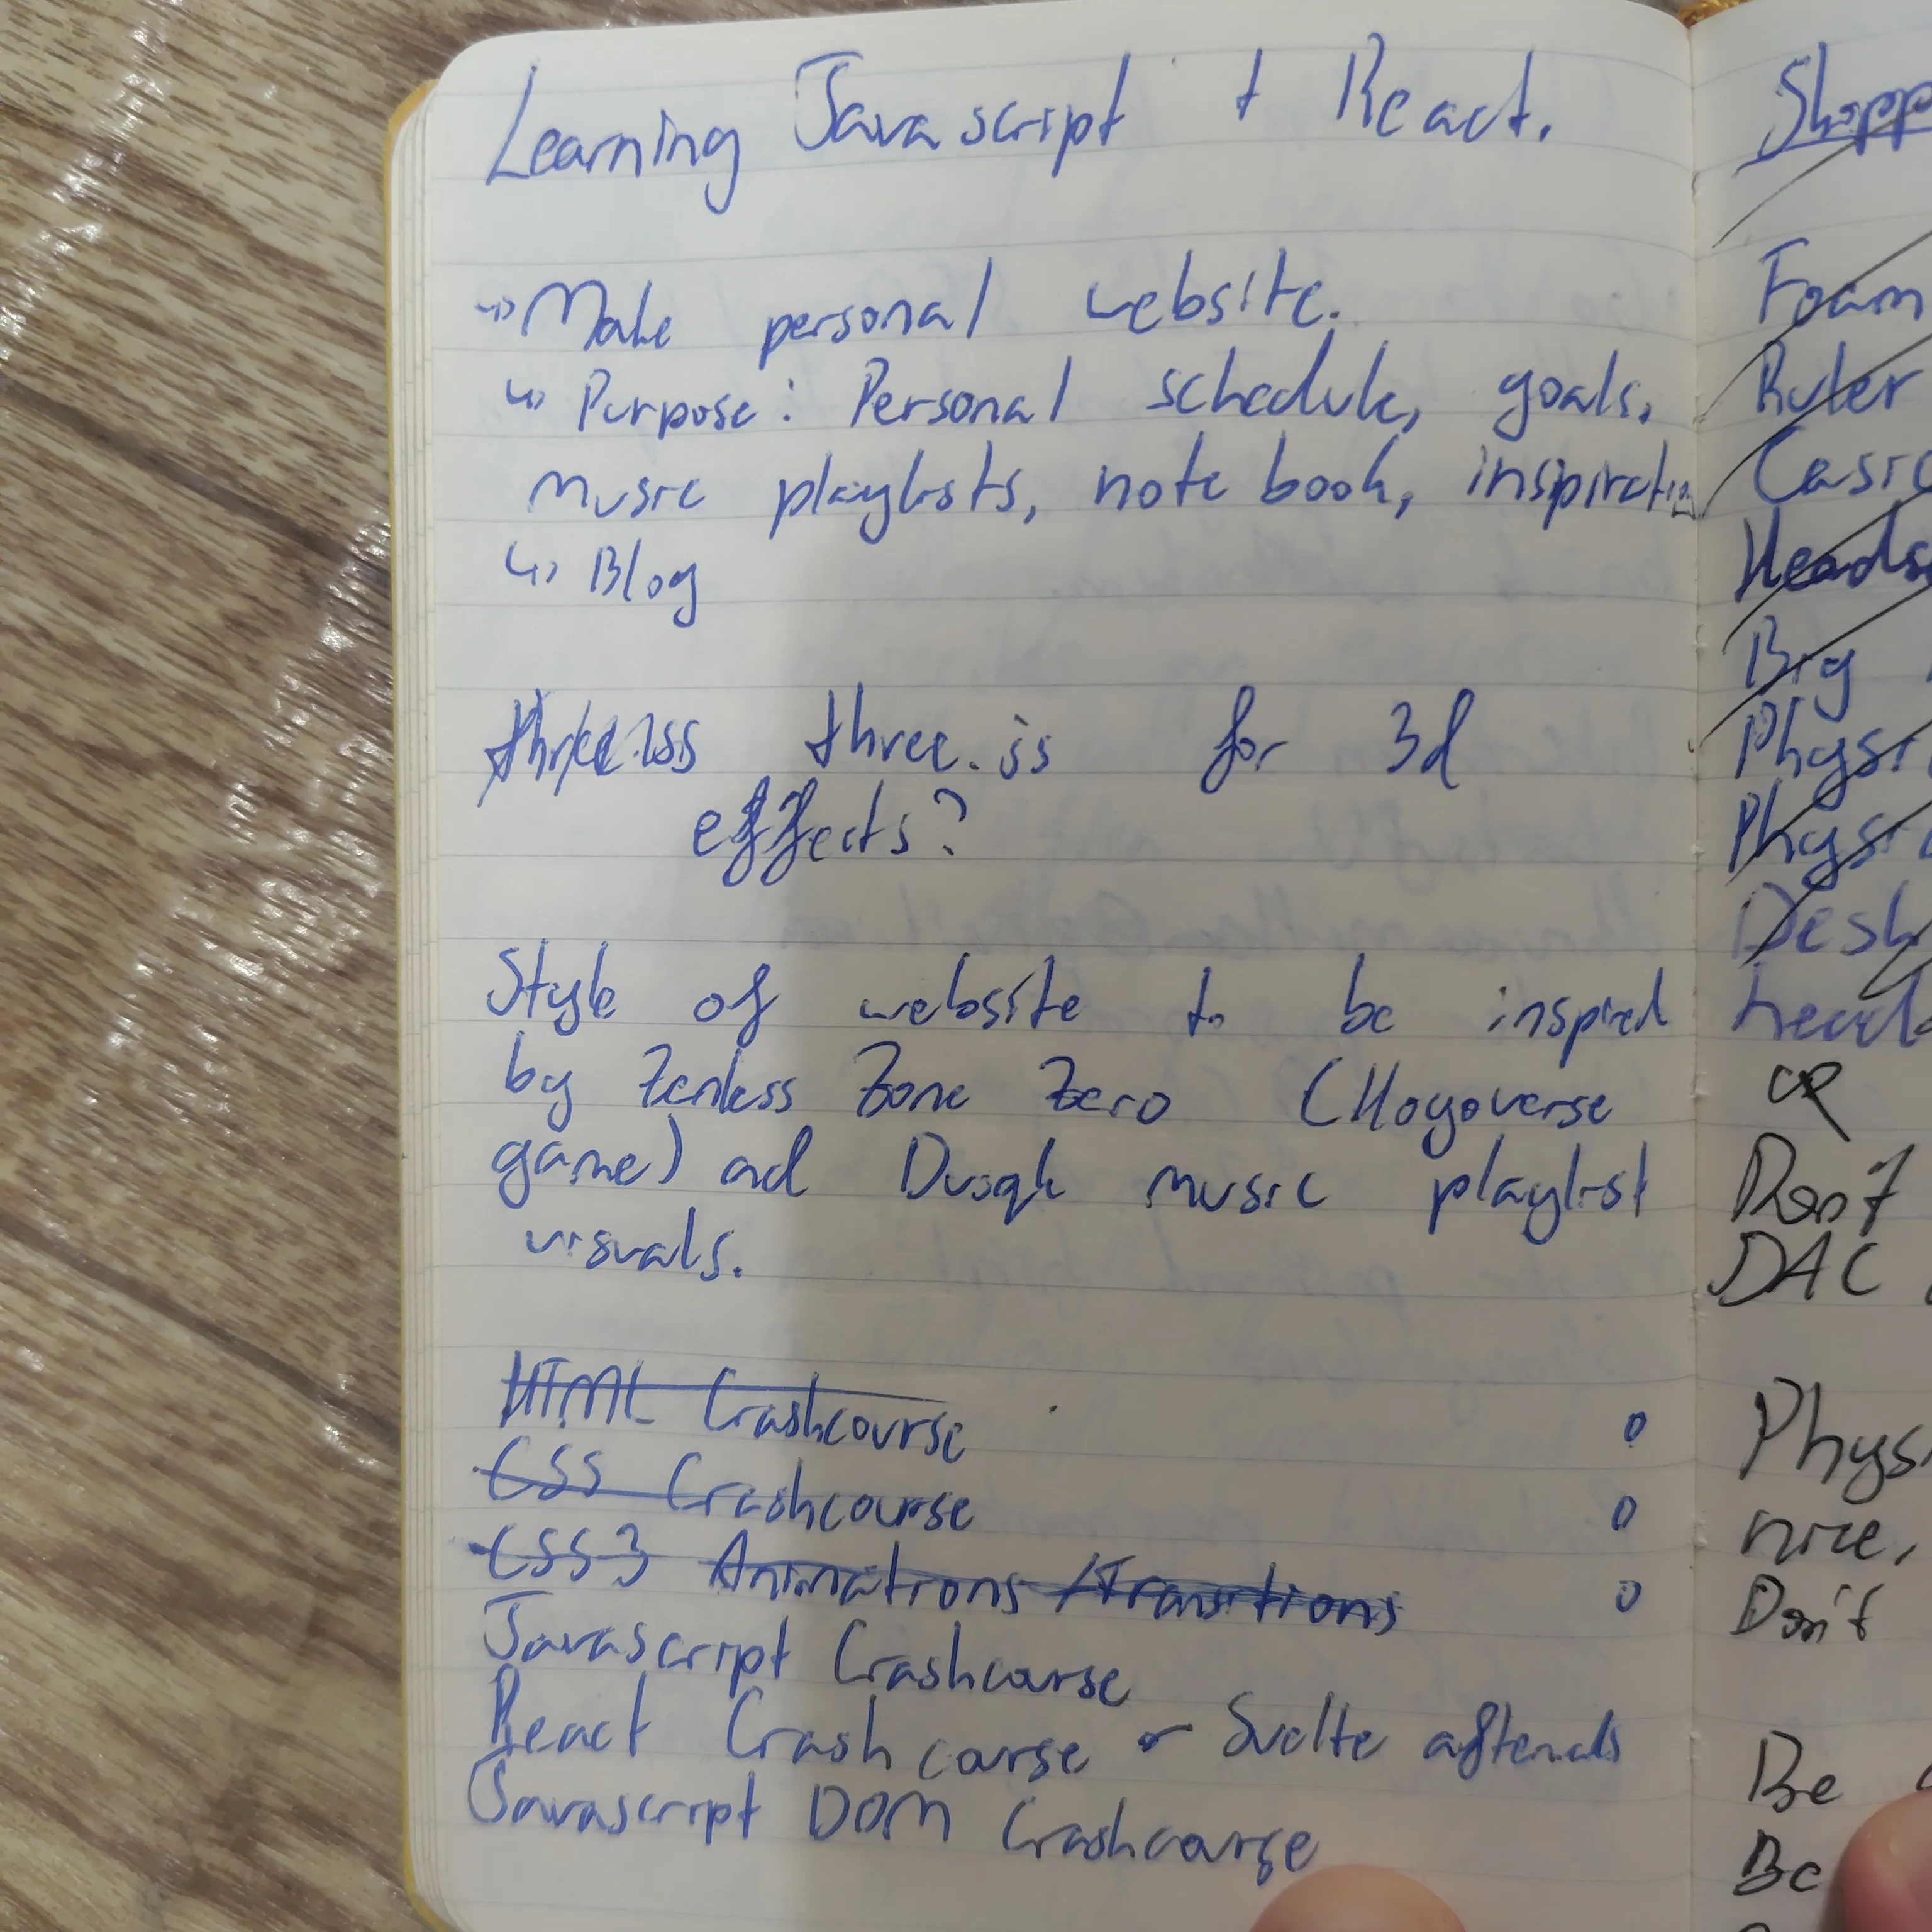 Learning Javascript + React.
↳ Make personal website.
↳ Purpose: Personal schedule, goals,
music playlists, note book, inspiration
↳ Blog
three.js for 3d
effects?
Style of website to be inspired
by Zenless Zone Zero (Hoyoverse
game) and Dusqk music playlist
visuals.
HTML Crashcourse o
CSS Crashcourse o
CSS3 Animations/Transitions o
Javascript Crashcourse
React Crash course or Svelte afterwards
Javascript DOM Crashcourse
Shopp
Foam
Ruler
Casio
Heads
Big
Physi
Physi
Desk
head
OR
Don't
DAC
Phys
nice,
Don't
Be
Be